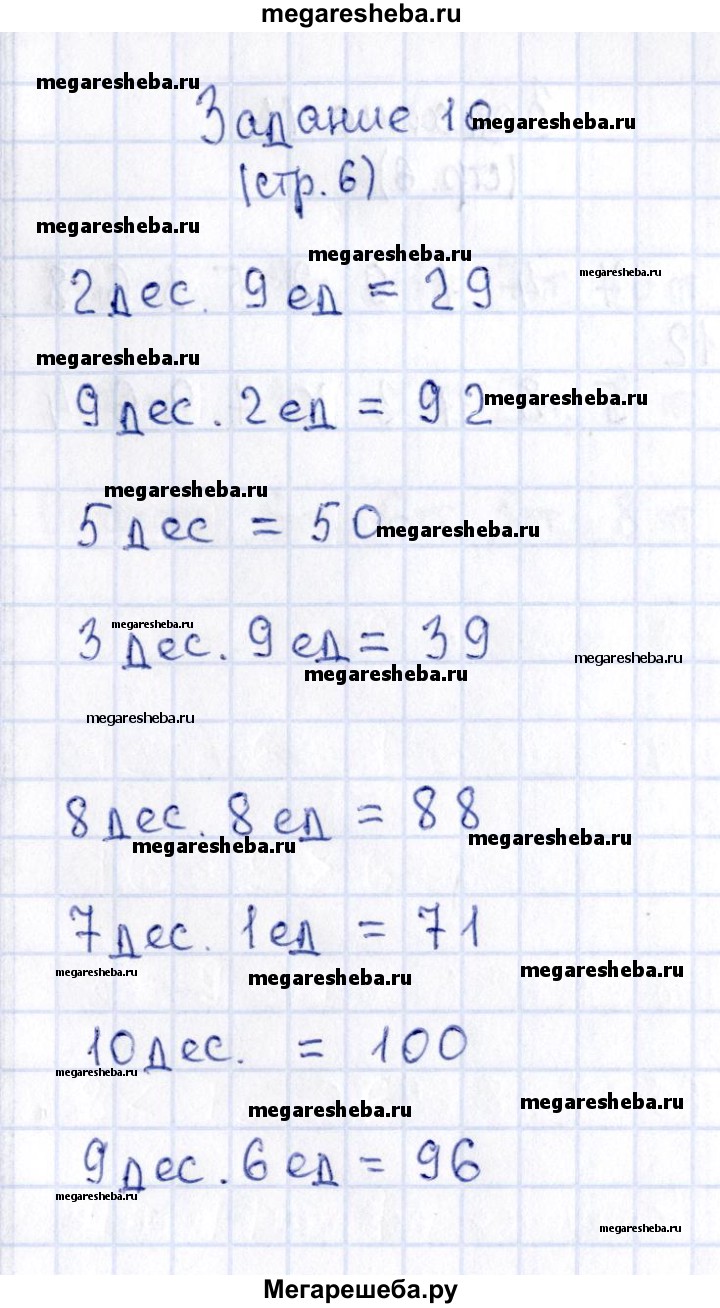 megaresheba.ru
megaresheba.ru
Задание 10 megaresheba.ru
(стр. 6)
megaresheba.ru
megaresheba.ru
megaresheba.ru
2 дес. 9 ед = 29
megaresheba.ru
9 дес. 2 ед = 92 megaresheba.ru
megaresheba.ru
5 дес = 50 megaresheba.ru
megaresheba.ru
3 дес. 9 ед = 39
megaresheba.ru
megaresheba.ru
megaresheba.ru
8 дес. 8 ед = 88
megaresheba.ru
megaresheba.ru
7 дес. 1 ед = 71
megaresheba.ru
megaresheba.ru
megaresheba.ru
10 дес. = 100
megaresheba.ru
megaresheba.ru
megaresheba.ru
9 дес. 6 ед = 96
megaresheba.ru
megaresheba.ru
Мегарешеба.ру